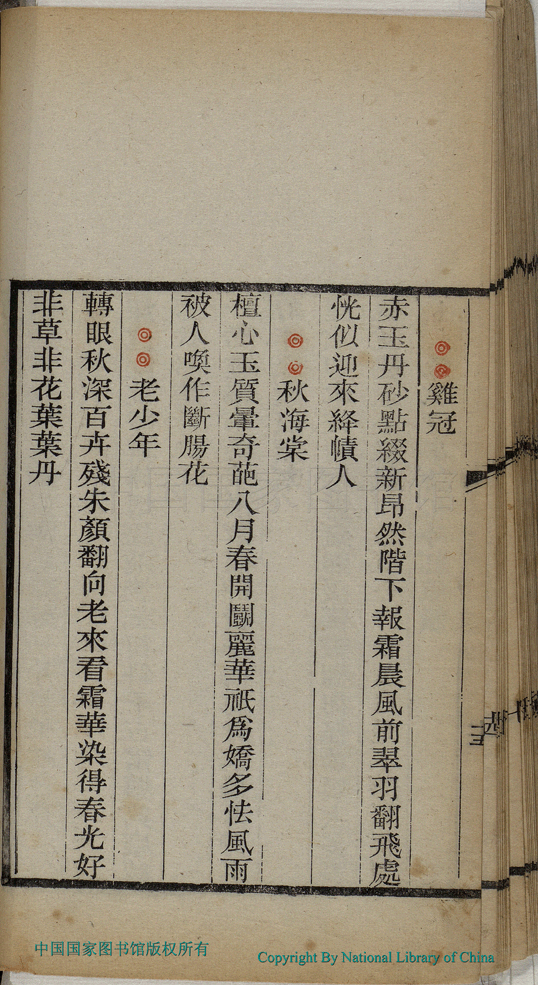 雞冠
赤玉丹砂點綴新昂然階下報霜晨風前翠羽翻飛處
恍似迎來絳幘人
秋海棠
檀心玉質暈奇葩八月春開鬭麗華祇為嬌多怯風雨
被人喚作斷腸花
老少年
轉眼秋深百卉殘朱顏翻向老來看霜華染得春光好
非草非花葉葉丹
中国国家图书馆版权所有
Copyright By National Library of China